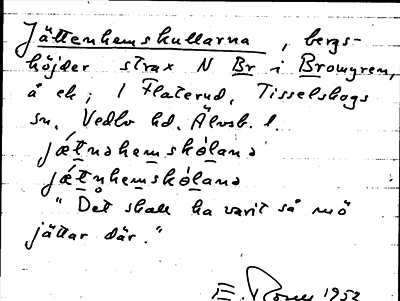 Jättenhemskullarna, bergs-
höjder strax N Br i Bromyren,
å ek; 1 Flaterud, Tisselskogs
sn, Vedbo hd, Älvsb. l.
jǽtnahemskólana
jǽtnhemskólana
"Det skall ha varit så mö
jättar där."
E. 1952